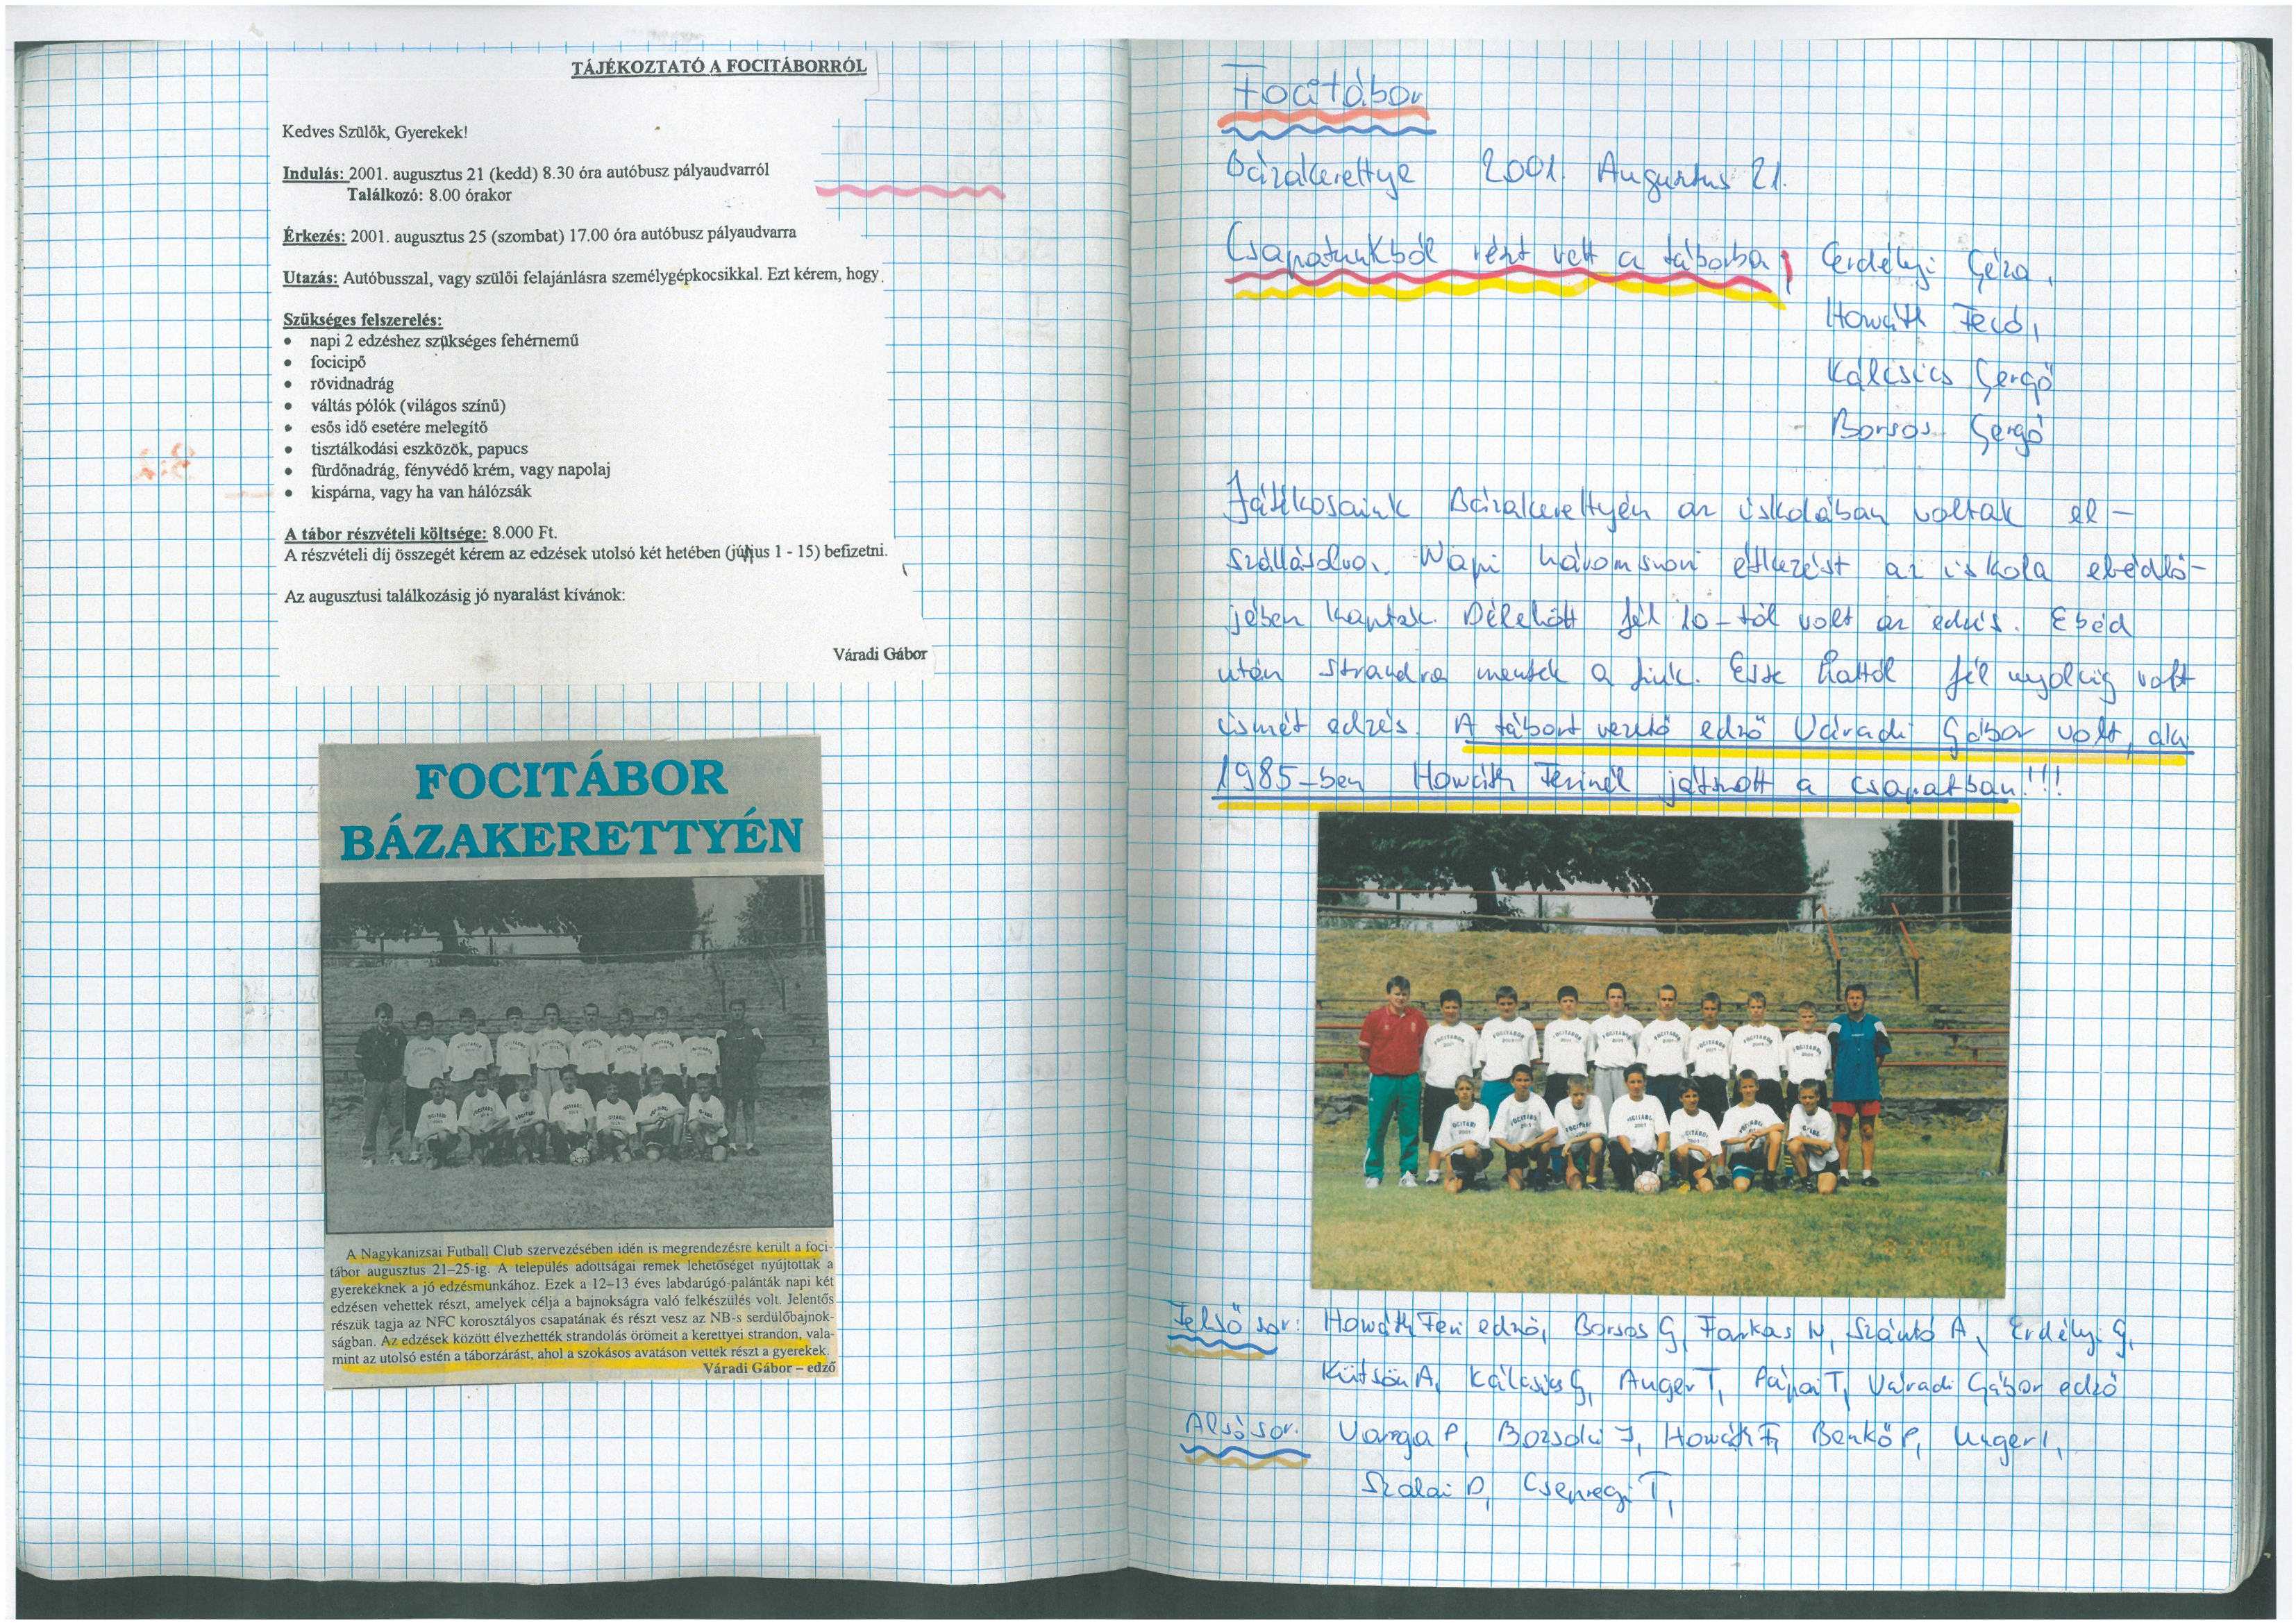 TÁJÉKOZTATÓ A FOCITÁBORRÓL
Kedves Szülők, Gyerekek!
Indulás: 2001. augusztus 21 (kedd) 8.30 óra autóbusz pályaudvarról
Találkozó: 8.00 órakor
Érkezés: 2001. augusztus 25 (szombat) 17.00 óra autóbusz pályaudvarra
Utazás: Autóbusszal, vagy szülői felajánlásra személygépkocsikkal. Ezt kérem, hogy
Szükséges felszerelés:
• napi 2 edzéshez szükséges fehérnemű
• focicipő
• rövidnadrág
• váltás pólók (világos színű)
• esős idő esetére melegítő
• tisztálkodási eszközök, papucs
• fürdőnadrág, fényvédő krém, vagy napolaj
• kispárna, vagy ha van hálózsák
A tábor részvételi költsége: 8.000 Ft.
A részvételi díj összegét kérem az edzések utolsó két hetében (június 1 - 15) befizetni.
Az augusztusi találkozásig jó nyaralást kívánok:
Váradi Gábor
FOCITÁBOR
BÁZAKERETTYÉN
A Nagykanizsai Futball Club szervezésében idén is megrendezésre került a foci-
tábor augusztus 21–25-ig. A település adottságai remek lehetőséget nyújtottak a
gyerekeknek a jó edzésmunkához. Ezek a 12–13 éves labdarúgó-palánták napi két
edzésen vehettek részt, amelyek célja a bajnokságra való felkészülés volt. Jelentős
részük tagja az NFC korosztályos csapatának és részt vesz az NB-s serdülőbajnok-
ságban. Az edzések között élvezhették strandolás örömeit a kerettyei strandon, vala-
mint az utolsó estén a táborzárást, ahol a szokásos avatáson vettek részt a gyerekek.
Váradi Gábor – edző
Focitábor
Bázakerettye 2001. Augusztus 21.
Csapatunkból részt vett a táborba, Erdélyi Géza,
Horváth Fecó,
Kálcsics Gergő
Borsos Gergő
Játékosaink Bázakerettyén az iskolában voltak el-
szállásolva. Napi háromszori étkezést az iskola ebédlő-
jében kaptak. Délelőtt fél 10-től volt az edzés. Ebéd
után strandra mentek a fiúk. Este hattól fél nyolcig volt
ismét edzés. A tábort vezető edző Váradi Gábor volt, aki
1985-ben Horváth Ferinél játszott a csapatban!!!
Felső sor: Horváth Feri edző, Borsos G, Farkas N, Szántó A, Erdélyi G,
Kütsön A, Kálcsics G, Auger T, Pápai T, Váradi Gábor edző
Alsó sor. Varga P, Bozsoki J, Horváth F, Benkő P, Unger I,
Szalai D, Csepregi T,